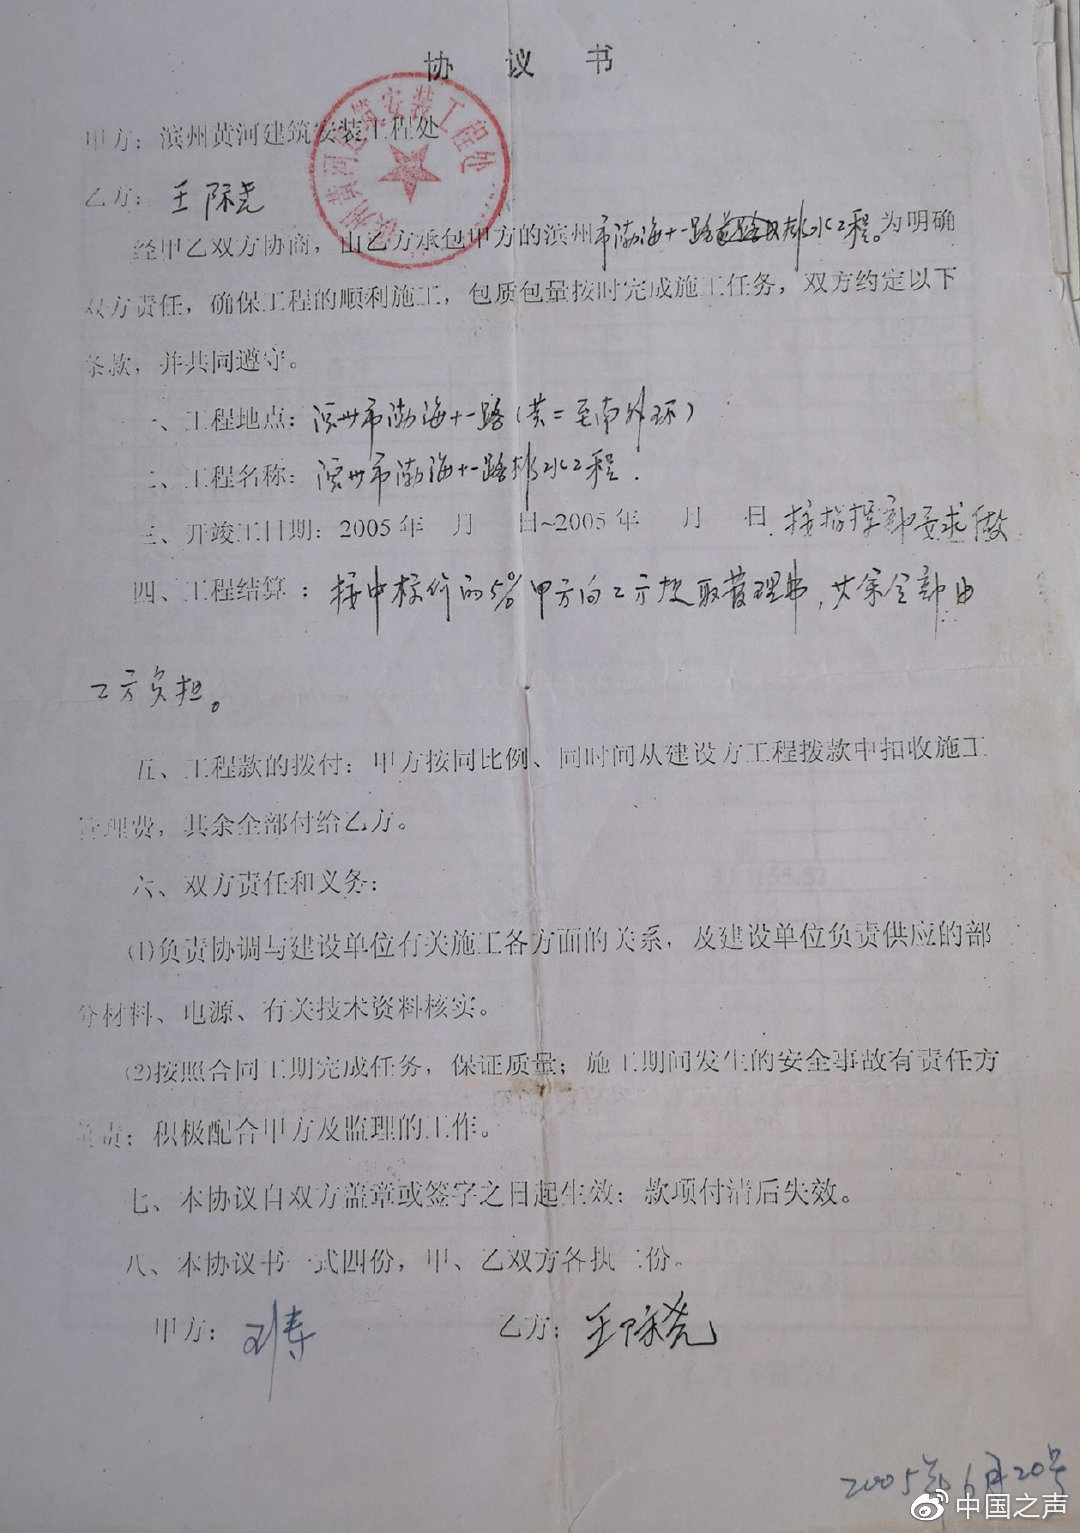 协 议 书
甲方：滨州黄河建筑安装工程处
滨州黄河建筑安装工程处
乙方：王际尧
经甲乙双方协商，由乙方承包甲方的滨州市渤海十一路排水工程。为明确
双方责任，确保工程的顺利施工，包质包量按时完成施工任务，双方约定以下
条款，并共同遵守。
一、工程地点：滨州市渤海十一路（黄二至南外环）
二、工程名称：滨州市渤海十一路排水工程.
三、开竣工日期：2005年 月 日~2005年 月 日.按指挥部要求做
四、工程结算：按中标价的5%甲方向乙方提取管理费，其余全部由
乙方负担。
五、工程款的拨付：甲方按同比例、同时间从建设方工程拨款中扣收施工
管理费，其余全部付给乙方。
六、双方责任和义务：
⑴负责协调与建设单位有关施工各方面的关系，及建设单位负责供应的部
分材料、电源、有关技术资料核实。
⑵按照合同工期完成任务，保证质量；施工期间发生的安全事故有责任方
负责；积极配合甲方及监理的工作。
七、本协议自双方盖章或签字之日起生效；款项付清后失效。
八、本协议书一式四份，甲、乙双方各执二份。
甲方： 乙方：王际尧
2005年6月20号
中国之声